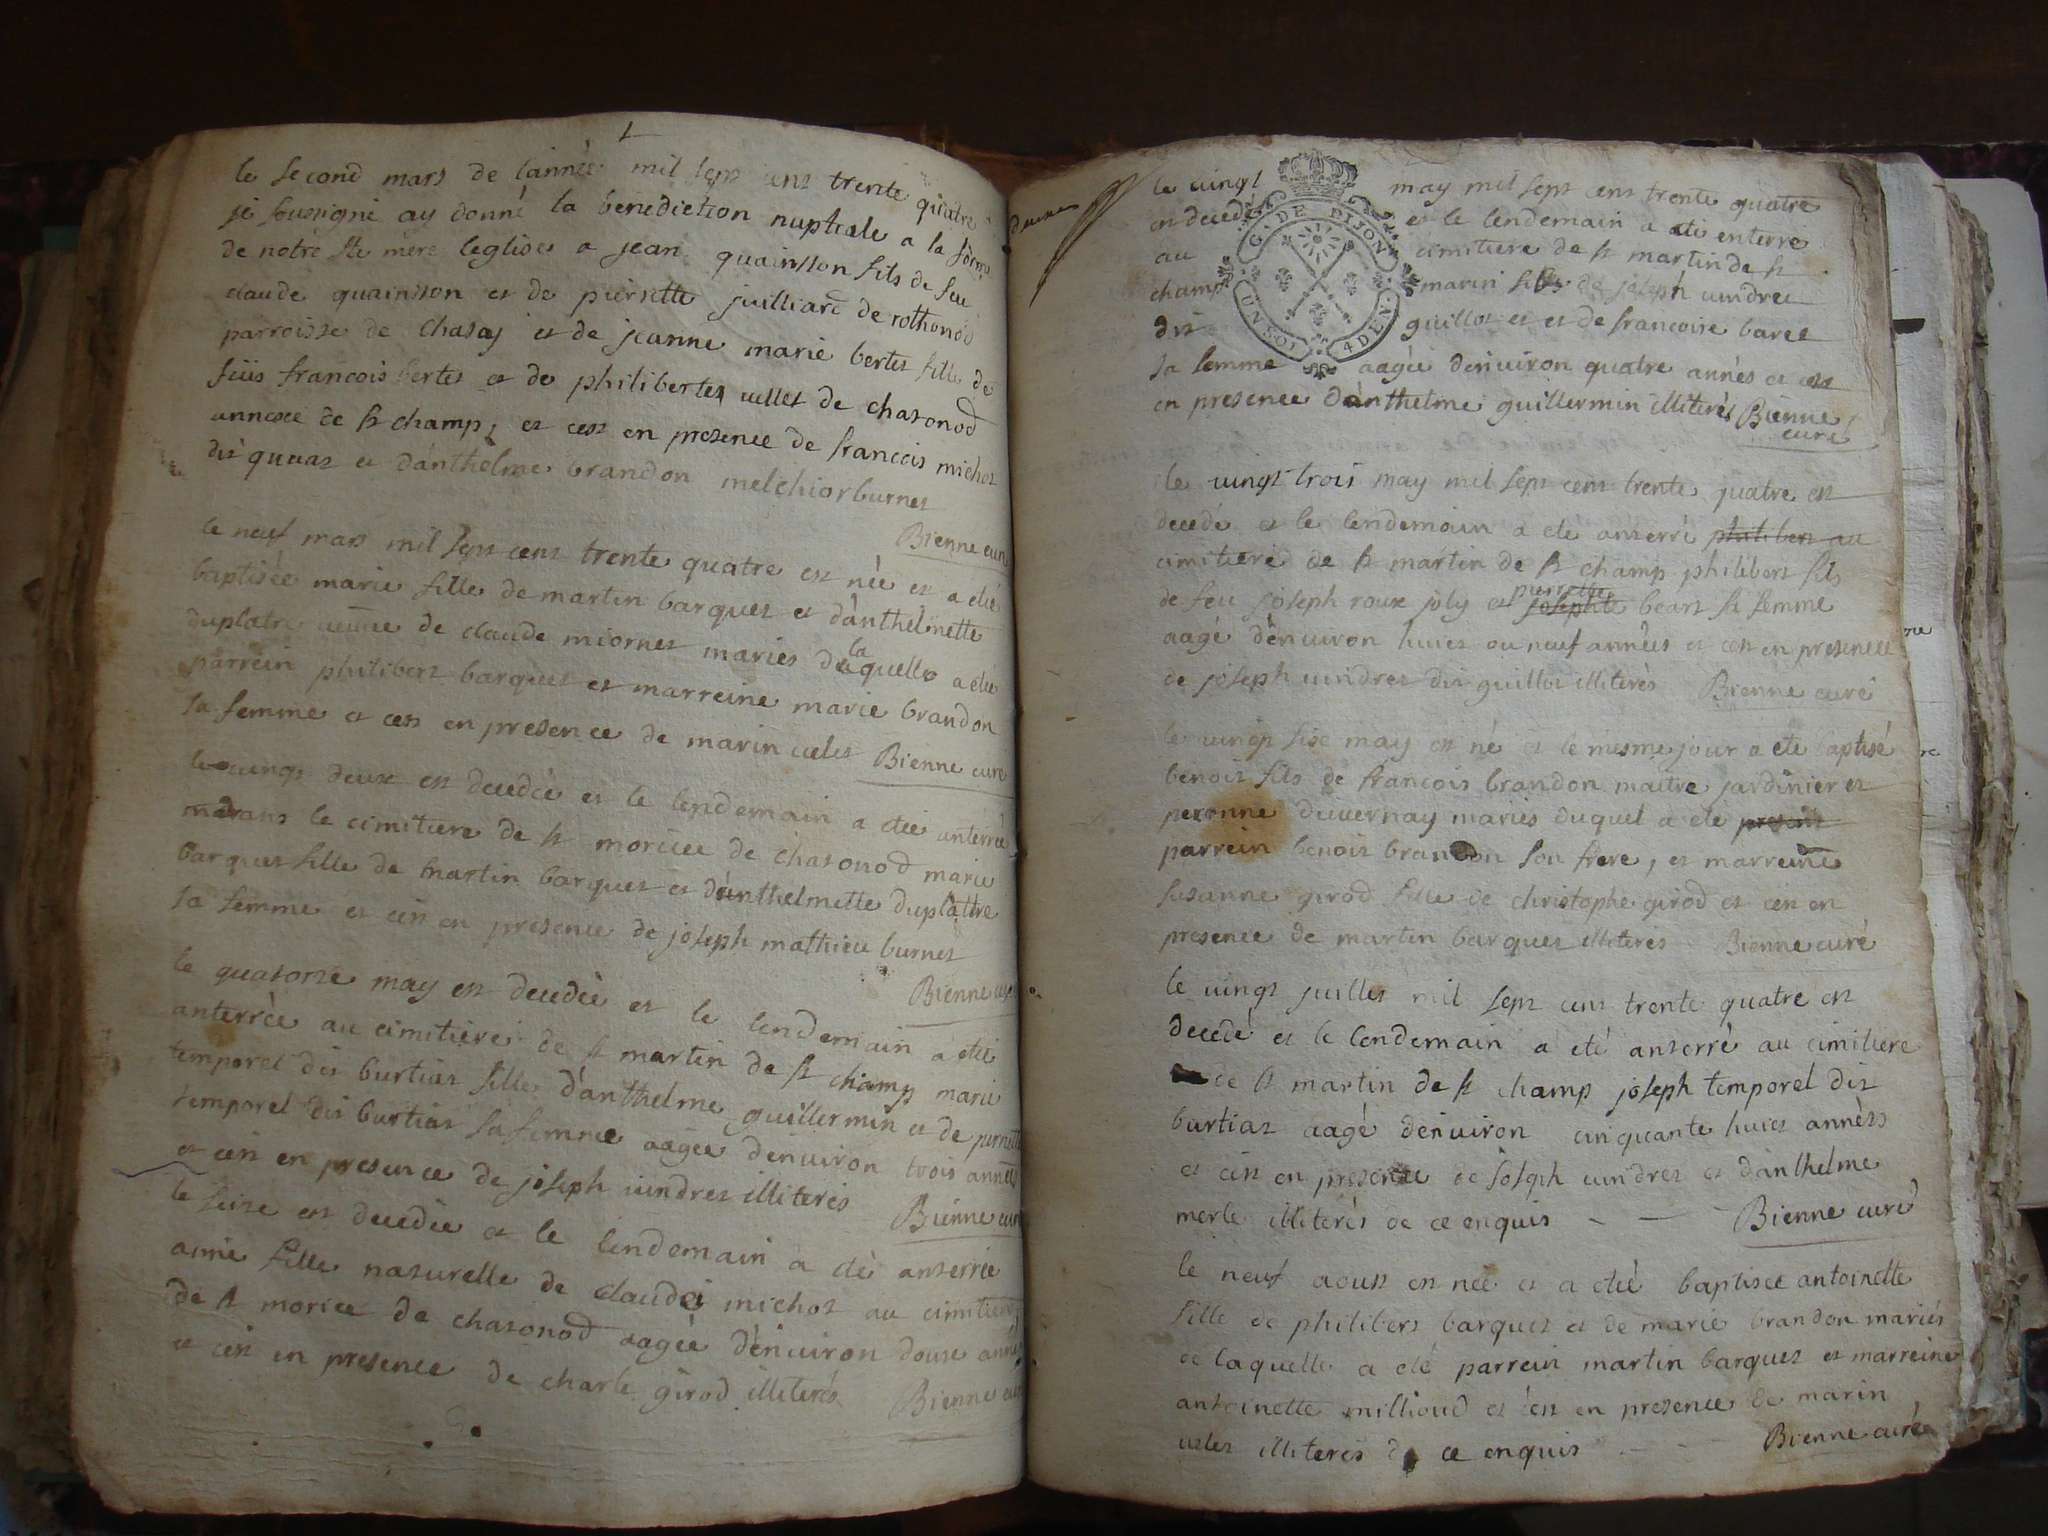 le second mars de lannée mil sept cens trente quatre
je soussigné ay donné la benediction nuptiale a la forme
de notre ste mere leglise a jean quainsson fils de feu
claude quainsson et de pierrette juilliard de rothonod
parroisse de chasay et de jeanne marie bertet fille de
feüs francois bertet et de philiberte vellet de chasonod
annexe de st champ, et cest en presence de francois michot
dit quuaz et danthelme brandon melchior burnet
Bienne curé
le neuf mars mil sept cens trente quatre est née et a eté
baptisée marie fille de martin barquet et danthelmette
duplatre veuue de claude miornet mariés de laquelle a eté
parrein philibert barquet et marreine marie brandon
sa femme et cest en presence de marin velet Bienne curé
le vingt deux est decedée et le lendemain a eté anterrée
dans le cimitiere de st morice de chasonod marie
barquet fille de martin barquet et danthelmette duplattre
sa femme et cest en presence de joseph mathieu burnet
Bienne curé
le quatorze may est decedée et le lendemain a eté
anterrée au cimitiere de st martin de st champ marie
temporel dit burtiaz fille danthelme guillermin et de pernette
temporel dit burtiaz sa femme aagée denuiron trois années
et cest en presence de joseph vindret illiterés Bienne curé
le seize est decedée et le lendemain a eté anterrée
anne fille naturelle de claude michot au cimitiere
de st morice de chasonod aagée denuiron douze années
et cest en presence de charle girod illiterés Bienne curé
le vingt may mil sept cens trente quatre
est decedé et le lendemain a eté enterré
au cimitiere de st martin de st
champ marin fils de joseph vindret
dit guillot et et de francoise baret
sa femme aagée denuiron quatre années et cest
en presence danthelme guillermin illiterés Bienne
curé
G. DE DIJON
UN SOL 4 DEN.
le vingt trois may mil sept cens trente quatre est
decedé et le lendemain a eté anterré philibert au
cimitiere de st martin de st champ philibert fils
de feu joseph roux joly et josephte pierrette béart sa femme
aagé denuiron huict ou neuf années et cest en presence
de joseph vindret dit guillot illiterés Bienne curé
le vingt sixe may est né et le mesme jour a eté baptisé
benoit fils de francois brandon maitre jardinier et
peronne duuernay mariés duquel a eté present
parrein benoit brandon son frere, et marreine
susanne girod fille de christophe girod et cest en
presence de martin barquet illiterés Bienne curé
le vingt juillet mil sept cens trente quatre est
decedé et le lendemain a eté anterré au cimitiere
de st martin de st champ joseph temporel dit
burtiaz aagé denuiron cinquante huict années
et cest en presence de joseph vindret et danthelme
merle illiterés de ce enquis Bienne curé
le neuf aoust est née et a eté baptisée antoinette
fille de philibert barquet et de marie brandon mariés
de laquelle a eté parrein martin barquet et marreine
antoinette millioud et cest en presence de marin
velet illiterés de ce enquis Bienne curé